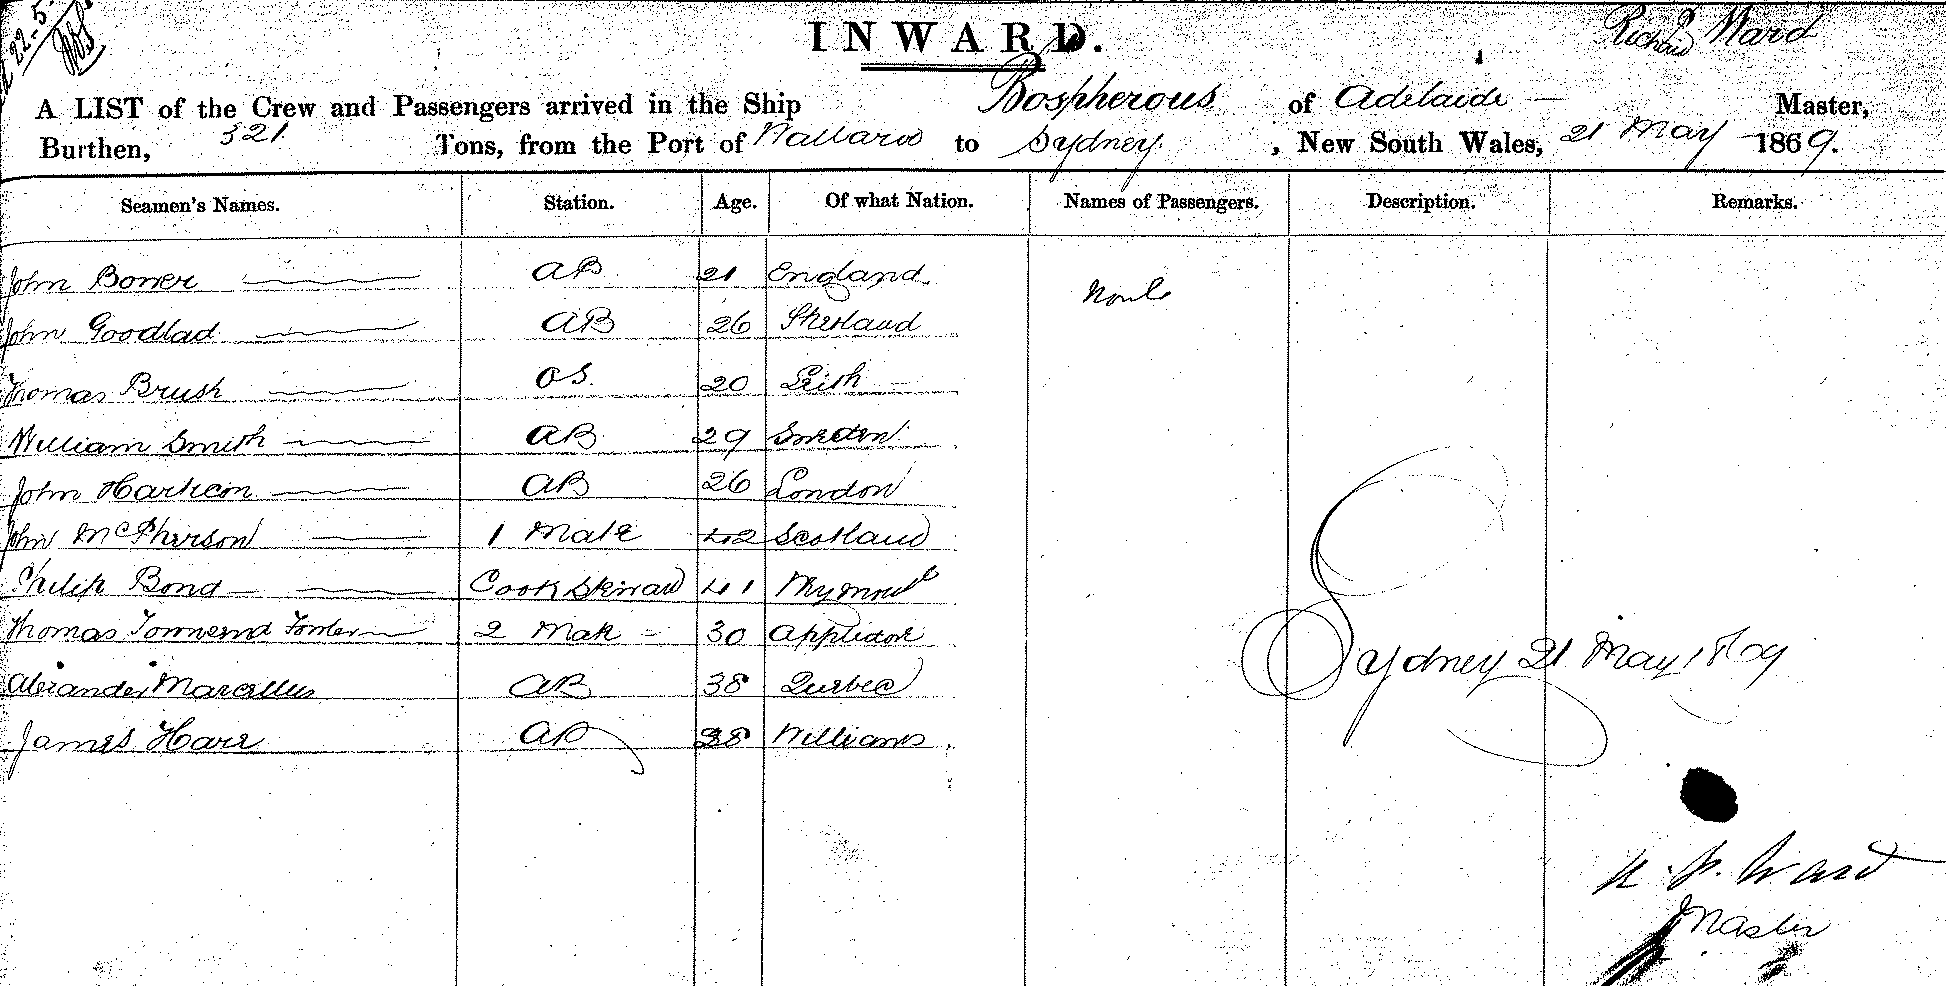 22. 5.
INWARD.
Richard Ward
A LIST of the Crew and Passengers arrived in the Ship Bospherous of Adelaide — Master,
Burthen, 321 Tons, from the Port of Wallaroo to Sydney, New South Wales, 21 May 1869.
Seamen's Names. Station. Age. Of what Nation. Names of Passengers. Description. Remarks.
John Bower AB 21 England None
John Goodlad AB 26 Shetland
Thomas Brush OS. 20 Leith
William Smith AB 29 Sweden
John AB 26 London
John McPherson 1 Mate 42 Scotland
Philip Bond Cook 41
Thomas Townsend Fowler 2 Mate 30 Appledore
Alexander Marcellus AB 38 Quebec
James Harr AB 28 Williams
Sydney 21 May 1869
Ward
Master